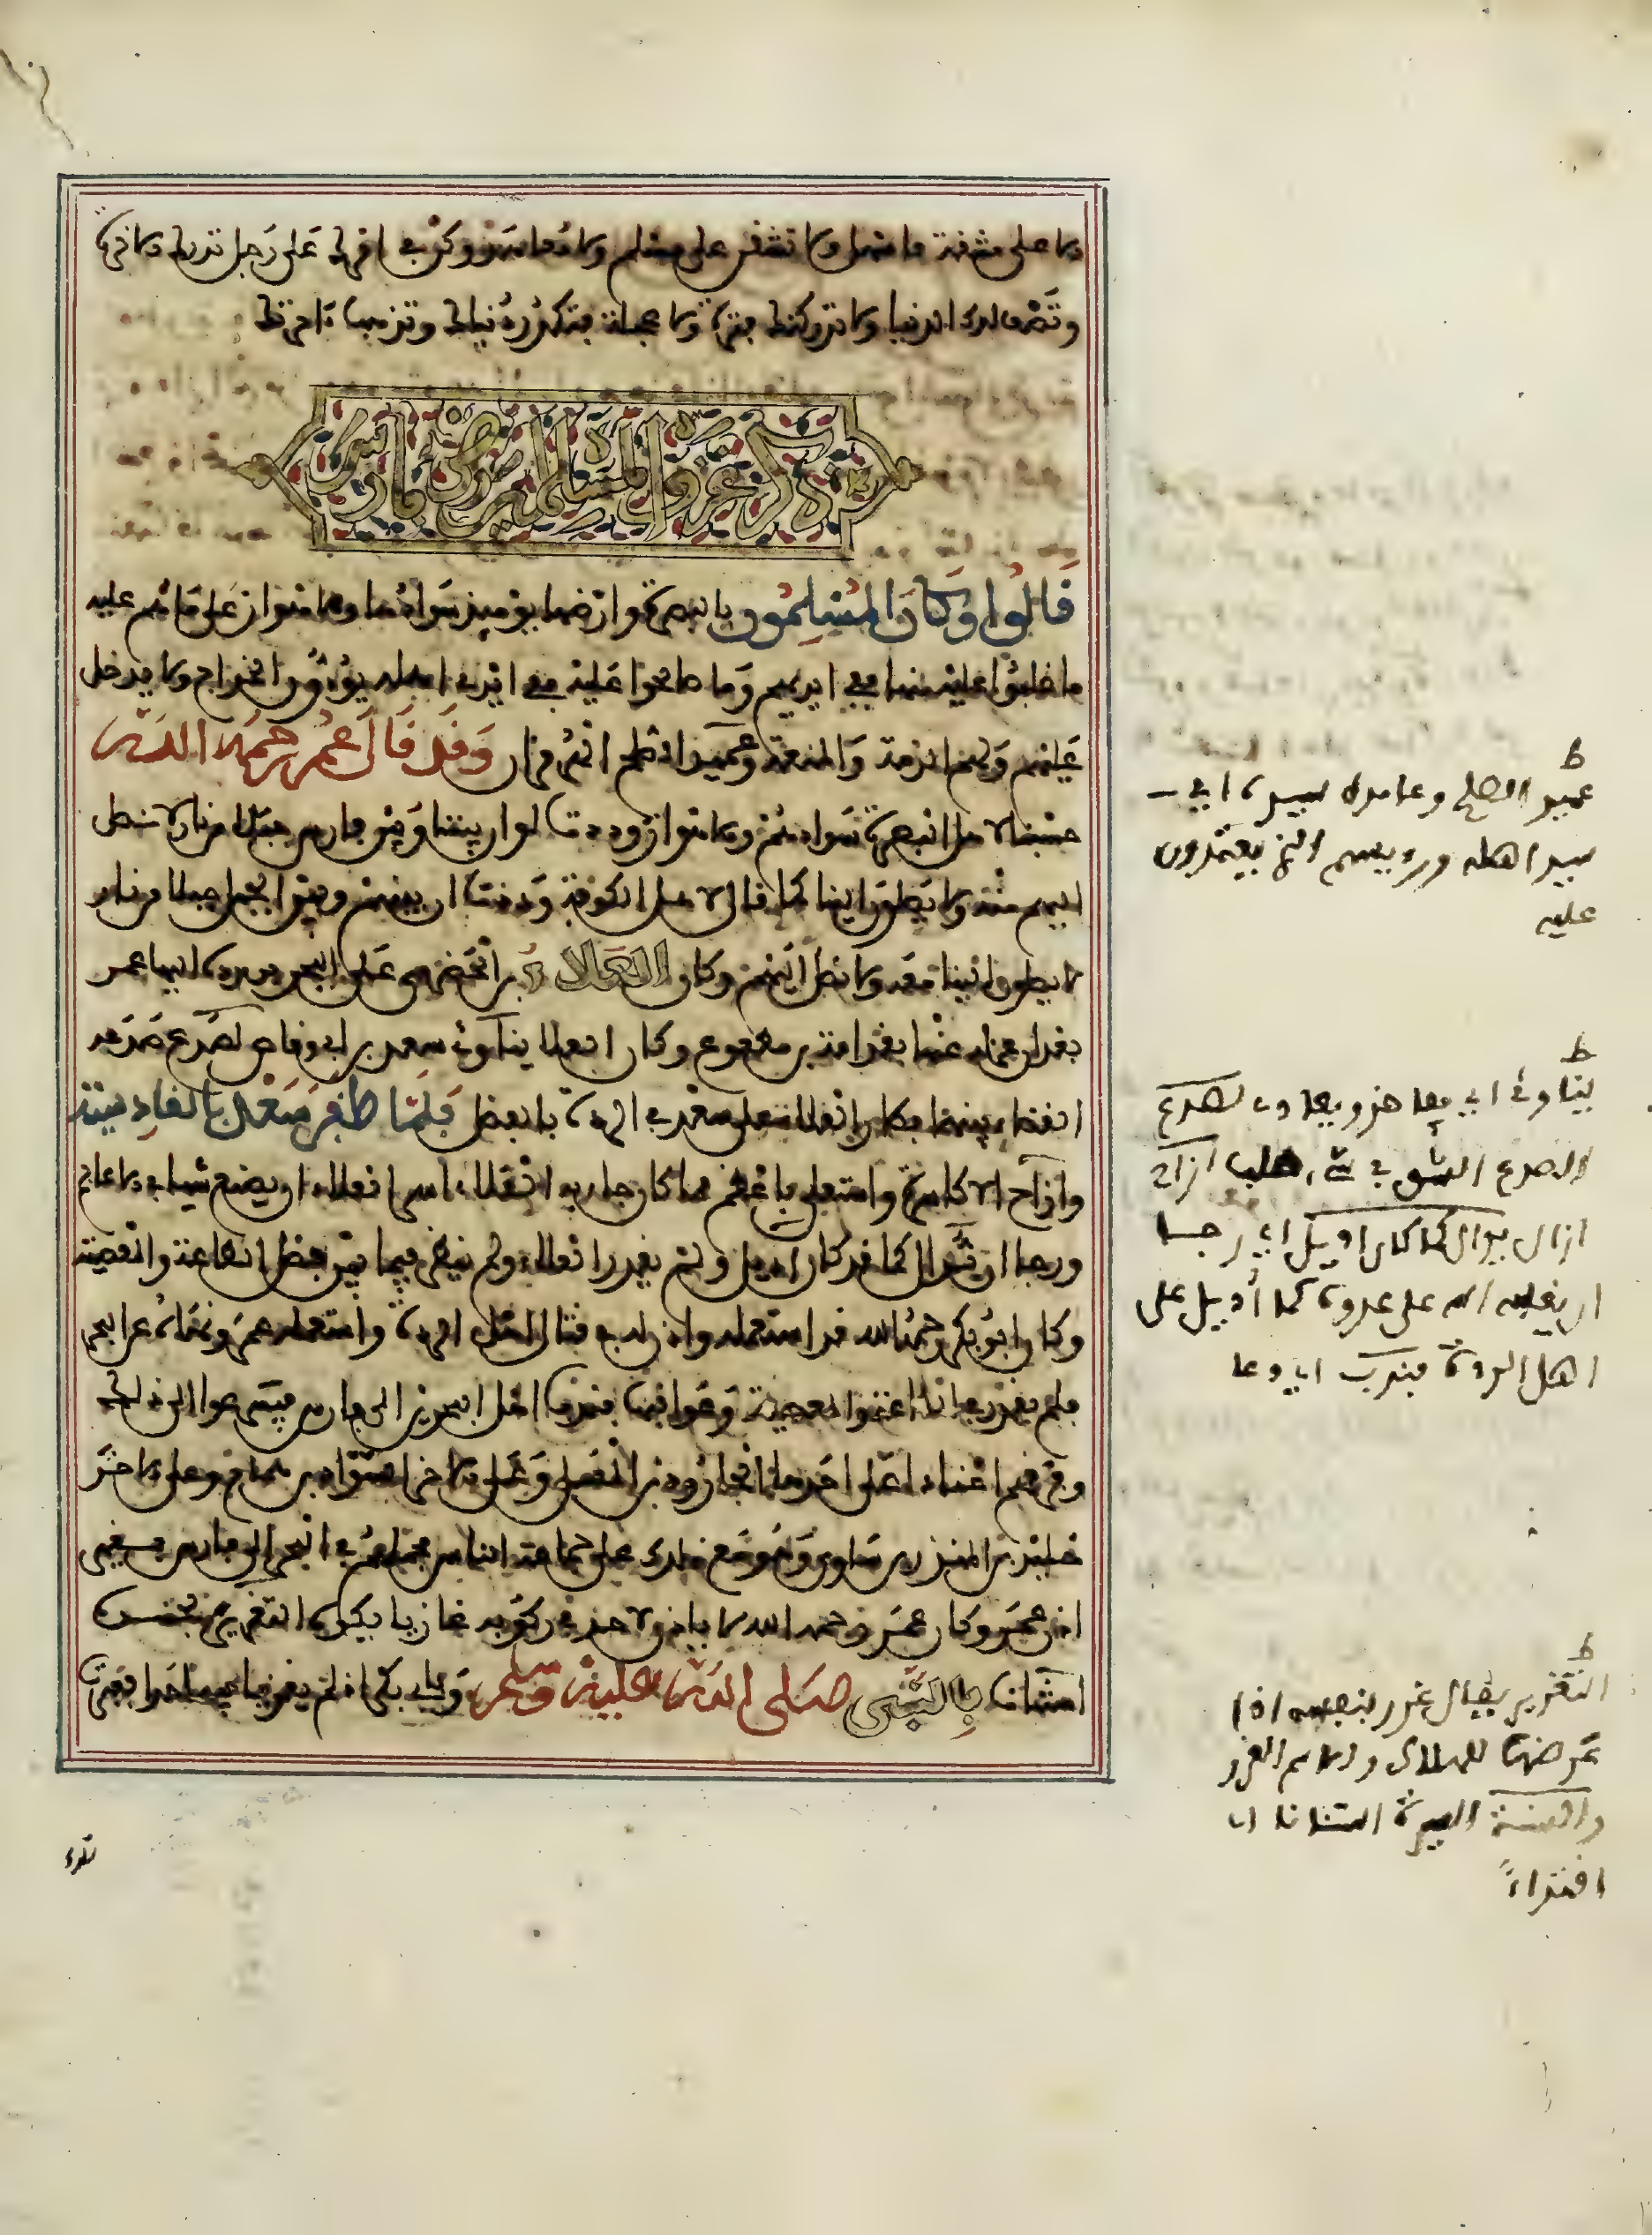 ولا على مشقة ما منها ولا تشفق على مسلم ولا معاهد وكن في أمرك على رجل تدرك الآخرة
وتصف لك الدنيا ولا تدركك فترة ولا عجلة فتكدر دنياك وتذهب آخرتك
ذكر غزو المسلمين أرض فارس
قالوا وكان المسلمون بالبصرة وارضها يوميذ سوادها والاهواز على ما هم عليه
ما غلبوا عليه منها ففي ايديهم وما صالحوا عليه ففي ايدي اهله يودون الخراج ولا يدخل
عليهم ولهم الذمة والمنعة وعميد الصلح الهرمزان وقد قال عمر رحمه الله
حسبنا لاهل البصرة سوادهم والاهواز وددت لو ان بيننا وبين فارس جبلا من نار لا نصل
اليهم منه ولا يصلون الينا كما قال لاهل الكوفة وددت ان بينهم وبين الجبل جبلا من نار
لا يصلون الينا منه ولا نصل اليهم وكان العلاء بن الحضرمي على البحرين ازمان عمر
فعزله عمر عنها بقدامة بن مظعون وكان العلا يناوئ سعد بن ابي وقاص لصدع صدعه
القضاء بينهما فطار العلا على سعد في الردة بالفضل فلما ظفر سعد بالقادسية
وازاح الاكاسرة واستعلى باعظم مما كان جاء به العلاء اسر العلاء ان يصنع شيا في الاعاجم
ورجا ان يدال كما قد كان اديل ولم يقدر العلاء ولم ينظر فيما بين فضل الطاعة والمعصية
وكان ابو بكر رحمه الله قد استعمله واذن له في قتال اهل الردة واستعمله عمر ونهاه عن البحر
فلم يقدر في الطاعة والمعصية وعواقبهما فندب اهل البحرين الى فارس فتسرعوا الى ذلك
وفرقهم اجنادا على احدهما الجارود بن المعلى وعلى الاخر السوار بن همام وعلى الاخر
خليد بن المنذر بن ساوى وهو مع ذلك على جماعة الناس فحملهم في البحر الى فارس بغير
اذن عمر وكان عمر رحمه الله لا ياذن لاحد في ركوبه غازيا يكره التغرير بجنده
استنانا بالنبي صلى الله عليه وسلم وبابي بكر اذ لم يغز فيه احدا فعبرت
ط
عميد الصلح وعامده سيده اي
سيد اهله ورويسهم الذي يعتمدون
عليه
ط
يناوئ اي يفاخر ويعادي لصدع
الصدع الشق في شيء صلب ازاح
ازال يدال كما كان اديل اي رجا
ان يغلبه الله على عدوه كما أديل على
اهل الردة فندب اي دعا
ط
التغرير يقال غرر بنفسه اذا
عرضها للهلاك والاسم الغرر
والسنة السيرة استنانا اي
اقتداءً